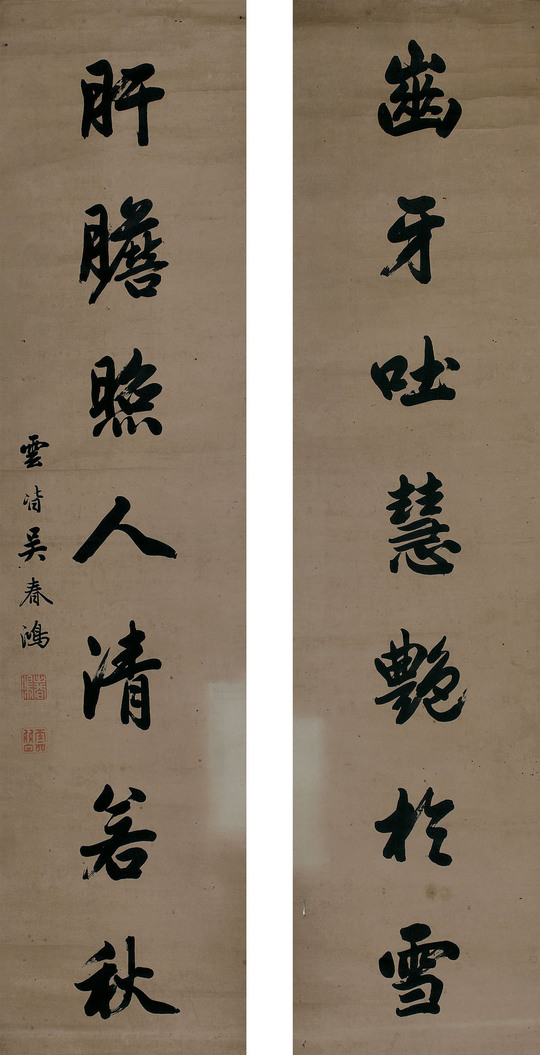 齒牙吐慧艷於雪
肝膽照人清若秋
雲渚吴春鴻